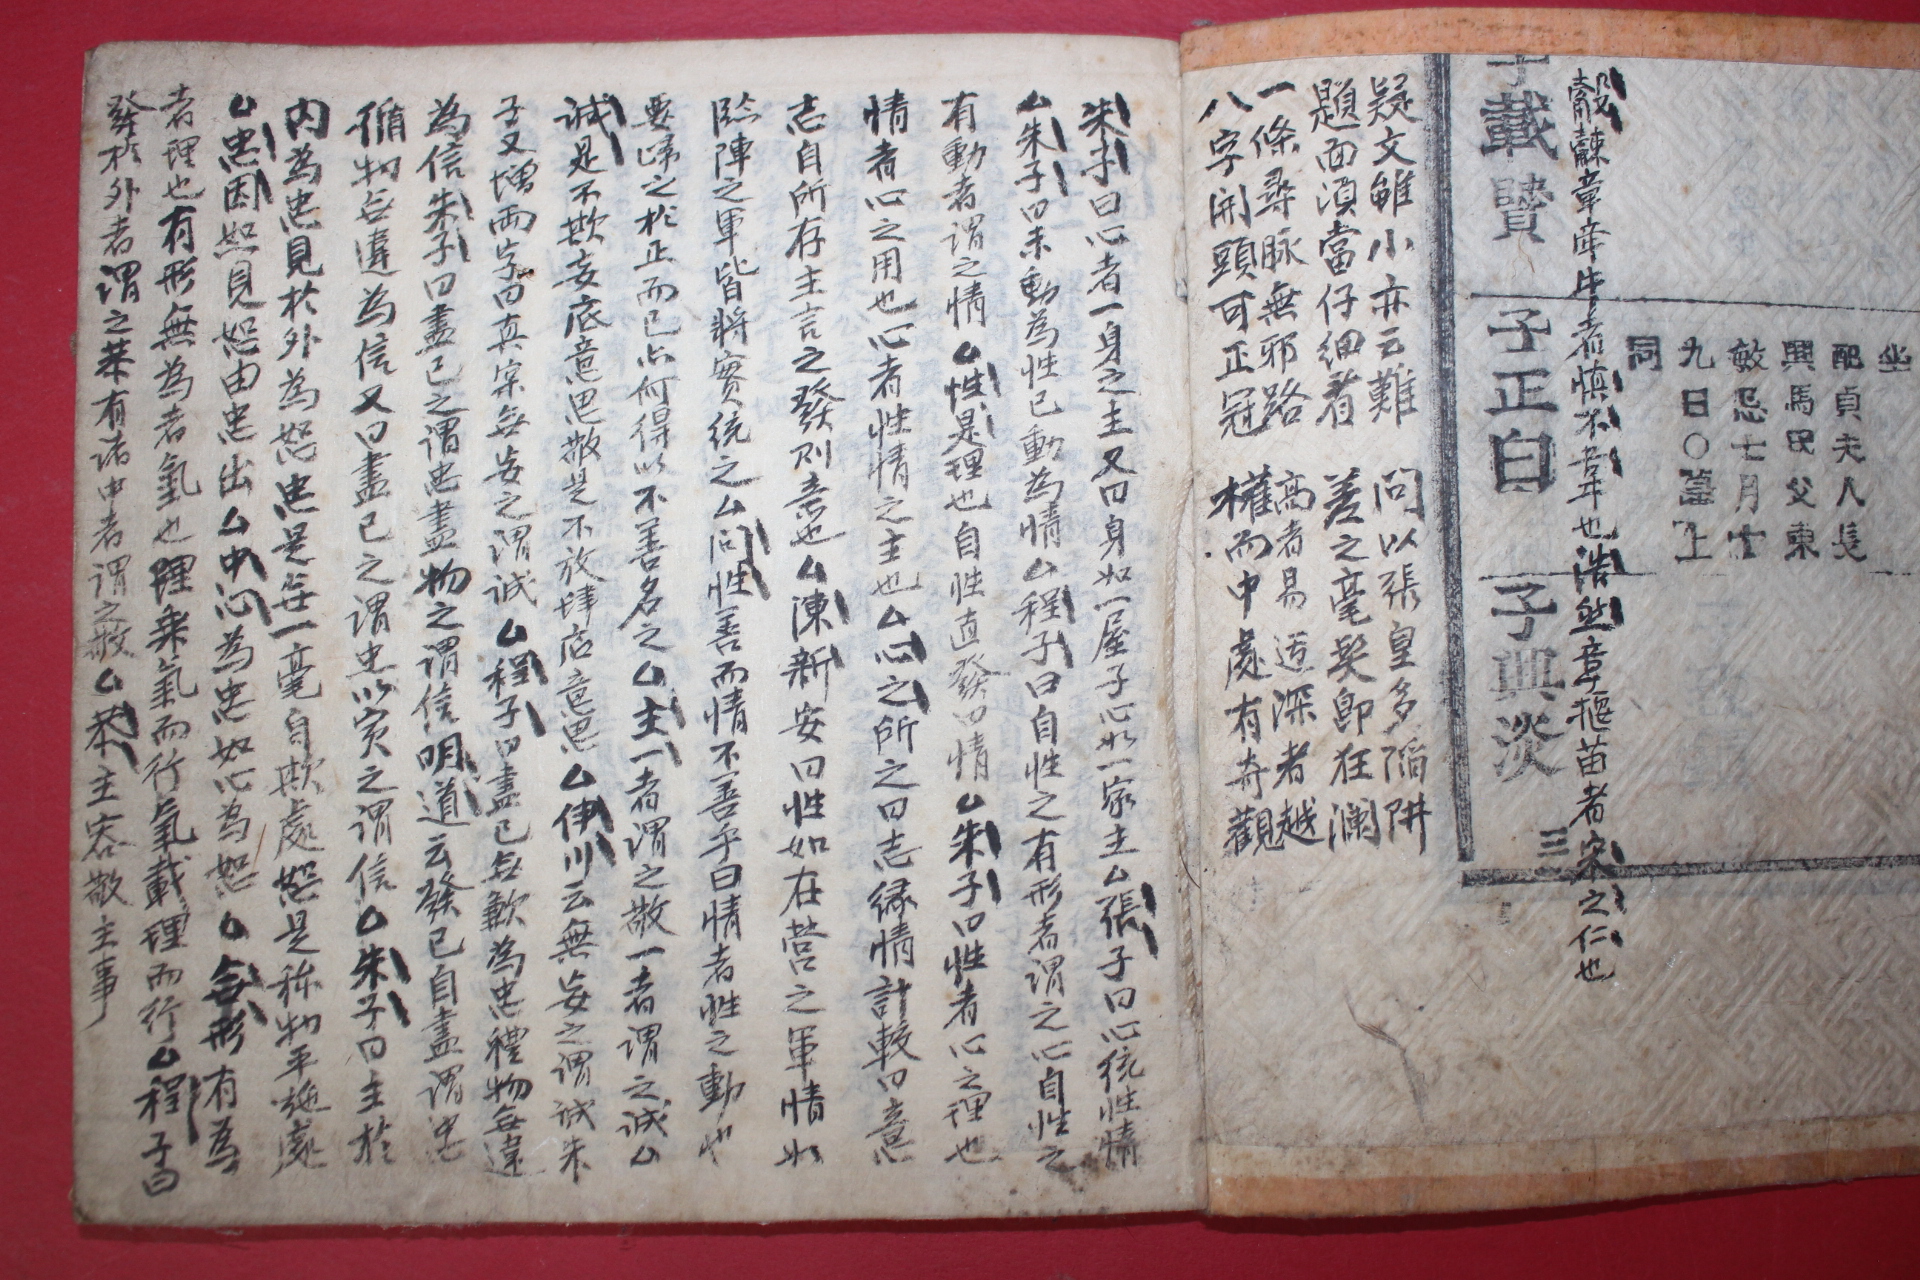 坐
配貞夫人長
興馬氏父東
敏忌士月士
九日〇墓上
同
觳觫章牽牛者慎不害牛也浩然章揠苗者宋之仁也
子載贇
子正白
子典淡
三
疑文雖小亦云難 問以張皇多陷阱
題面須當仔細着 差之毫髮即狂瀾
一條尋脉無邪路 高者易迃深者越
八字開頭可正冠 權而中處有奇觀
朱子曰心者一身之主又曰身如一屋子心如一家主厶張子曰心統性情
厶朱子曰未動為性已動為情厶程子曰自性之有形者謂之心自性之
有動者謂之情厶性是理也自性直發曰情厶朱子曰性者心之理也
情者心之用也心者性情之主也厶心之所之曰志緣情計較曰意
志自所存主言之發則意也厶陳新安曰性如在營之軍情如
臨陣之軍皆將實統之厶問性善而情不善乎曰情者性之動也
要歸之於正而已亦何得以不善名之厶主一者謂之敬一者謂之誠厶
誠是不欺妄底意思敬是不放肆底意思厶伊川云無妄之謂誠朱
子又增兩字曰真宗無妄之謂誠厶程子曰盡已無歉為忠體物無違
為信朱子曰盡已之謂忠盡物之謂信明道云發已自盡謂忠
循物無違為信又曰盡已之謂忠以實之謂信厶朱子曰主於
內為忠見於外為恕忠是無一毫自欺處恕是称物平施處
厶忠因恕見恕由忠出厶中心為忠如心為恕厶無形有為
者理也有形無為者氣也理乘氣而行氣載理而行厶程子曰
發於外者謂之恭有諸中者謂之敬厶恭主容敬主事